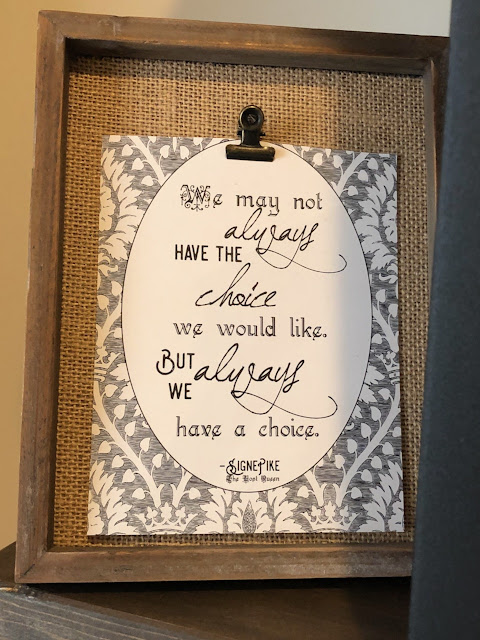 We may not
always
HAVE THE
choice
we would like.
BUT
WE always
have a choice.
- SIGNE PIKE
The Lost Queen